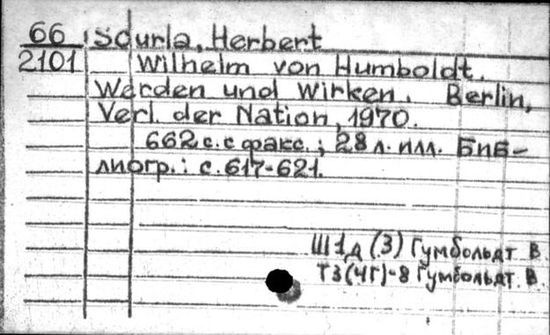 66 Scurla, Herbert
2101 Wilhelm von Humboldt.
Werden und Wirken. Berlin,
Verl. der Nation, 1970.
662 с. с факс.; 28 л. илл. Биб-
лиогр.: с. 617-621.
Ш1д(3) Гумбольдт В.
Т3(4Г)-8 Гумбольдт. В.